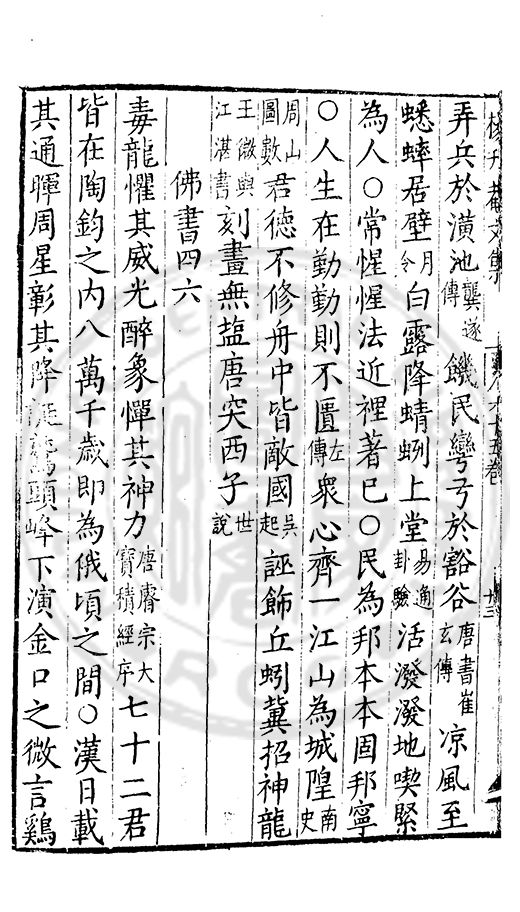 楊升菴文集 卷 十三
弄兵於潢池龔遂傳饑民彎弓於谿谷唐書崔玄傳凉風至
蟋蟀居壁月令白露降蜻蛚上堂易通卦驗活潑潑地喫緊
為人○常惺惺法近裡著已○民為邦本本固邦寧
○人生在勤勤則不匱左傳衆心齊一江山為城隍南史
周山圖數君德不修舟中皆敵國吳起誣飾丘蚓冀招神龍
王微與江湛書刻畫無塩唐突西子世說
佛書四六
毒龍懼其威光醉象憚其神力唐睿宗大寶積經序七十二君
皆在陶鈞之内八萬千歳即為俄頃之間○漢日載
其通暉周星彰其降誕鷲頭峰下演金口之微言鷄